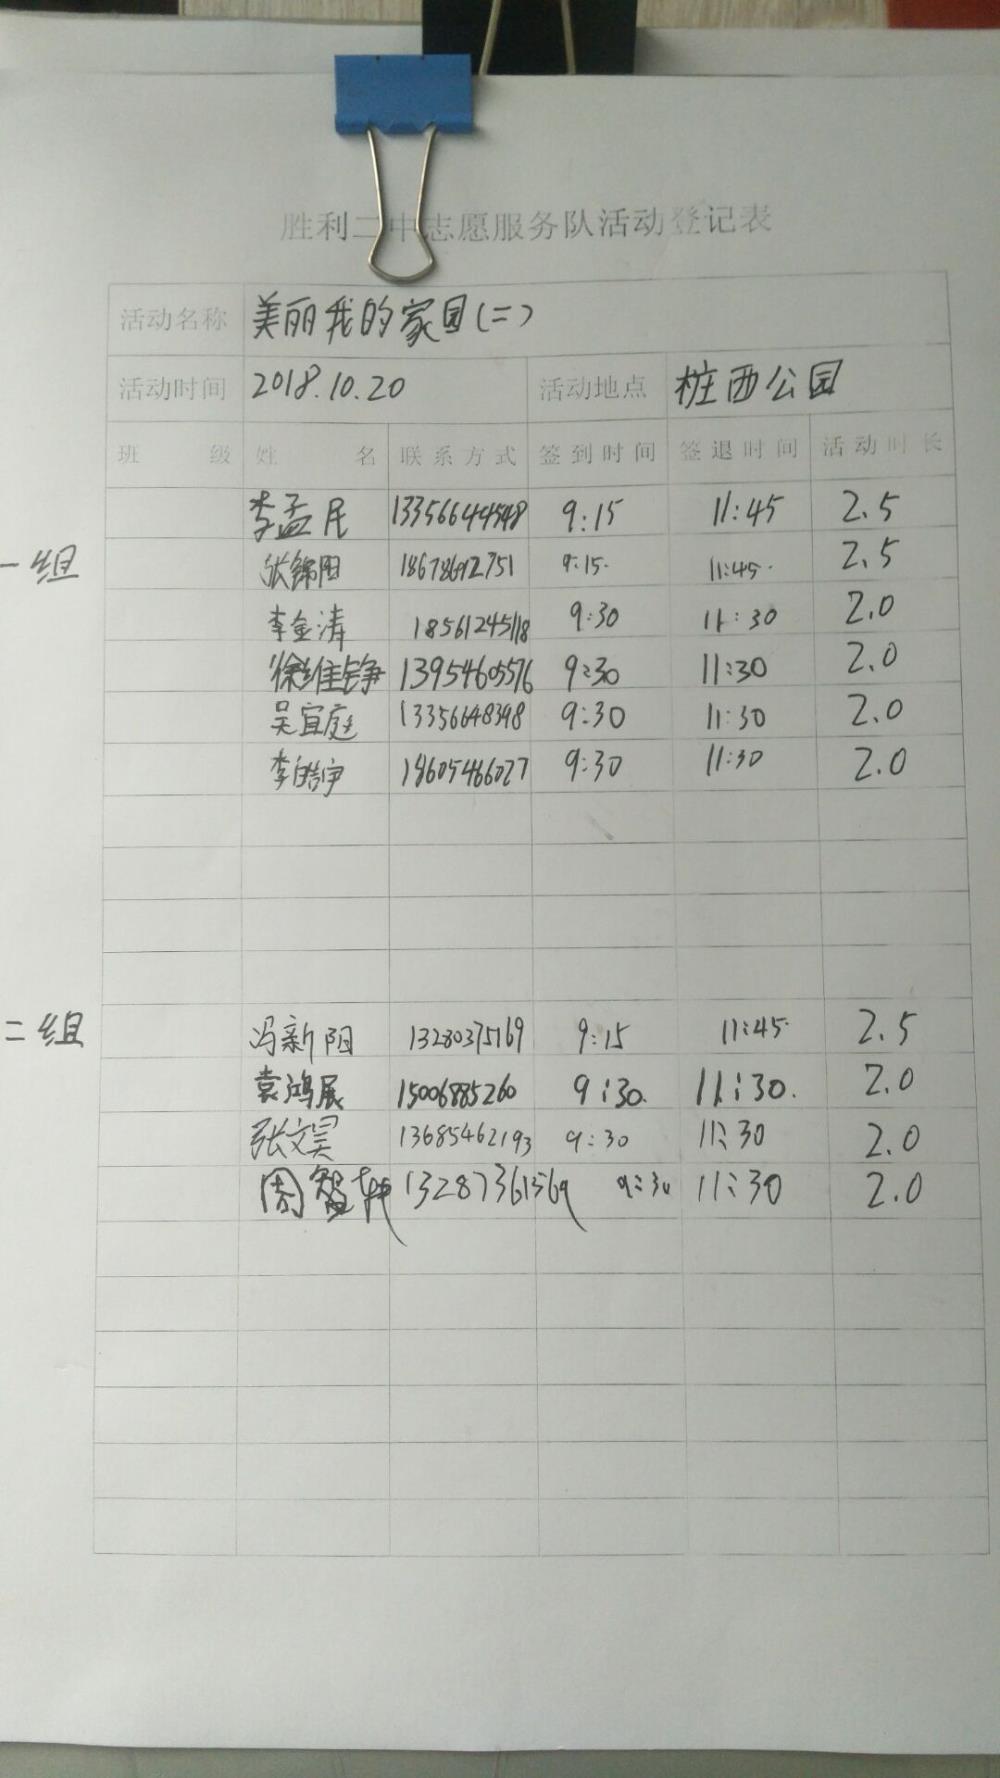 胜利二中志愿服务队活动登记表
活动名称 美丽我的家园(二)
活动时间 2018.10.20 活动地点 桩西公园
班级 姓名 联系方式 签到时间 签退时间 活动时长
李孟民 13356644548 9:15 11:45 2.5
一组 张锦阳 18678692751 9:15 11:45 2.5
李金清 18561245118 9:30 11:30 2.0
徐维铮 13954605576 9:30 11:30 2.0
吴宜庭 13356648398 9:30 11:30 2.0
李皓宇 18605466027 9:30 11:30 2.0
二组 冯新阳 13280375169 9:15 11:45 2.5
袁鸿展 15006885260 9:30 11:30 2.0
张文昊 13685462193 9:30 11:30 2.0
周 13287361569 9:30 11:30 2.0